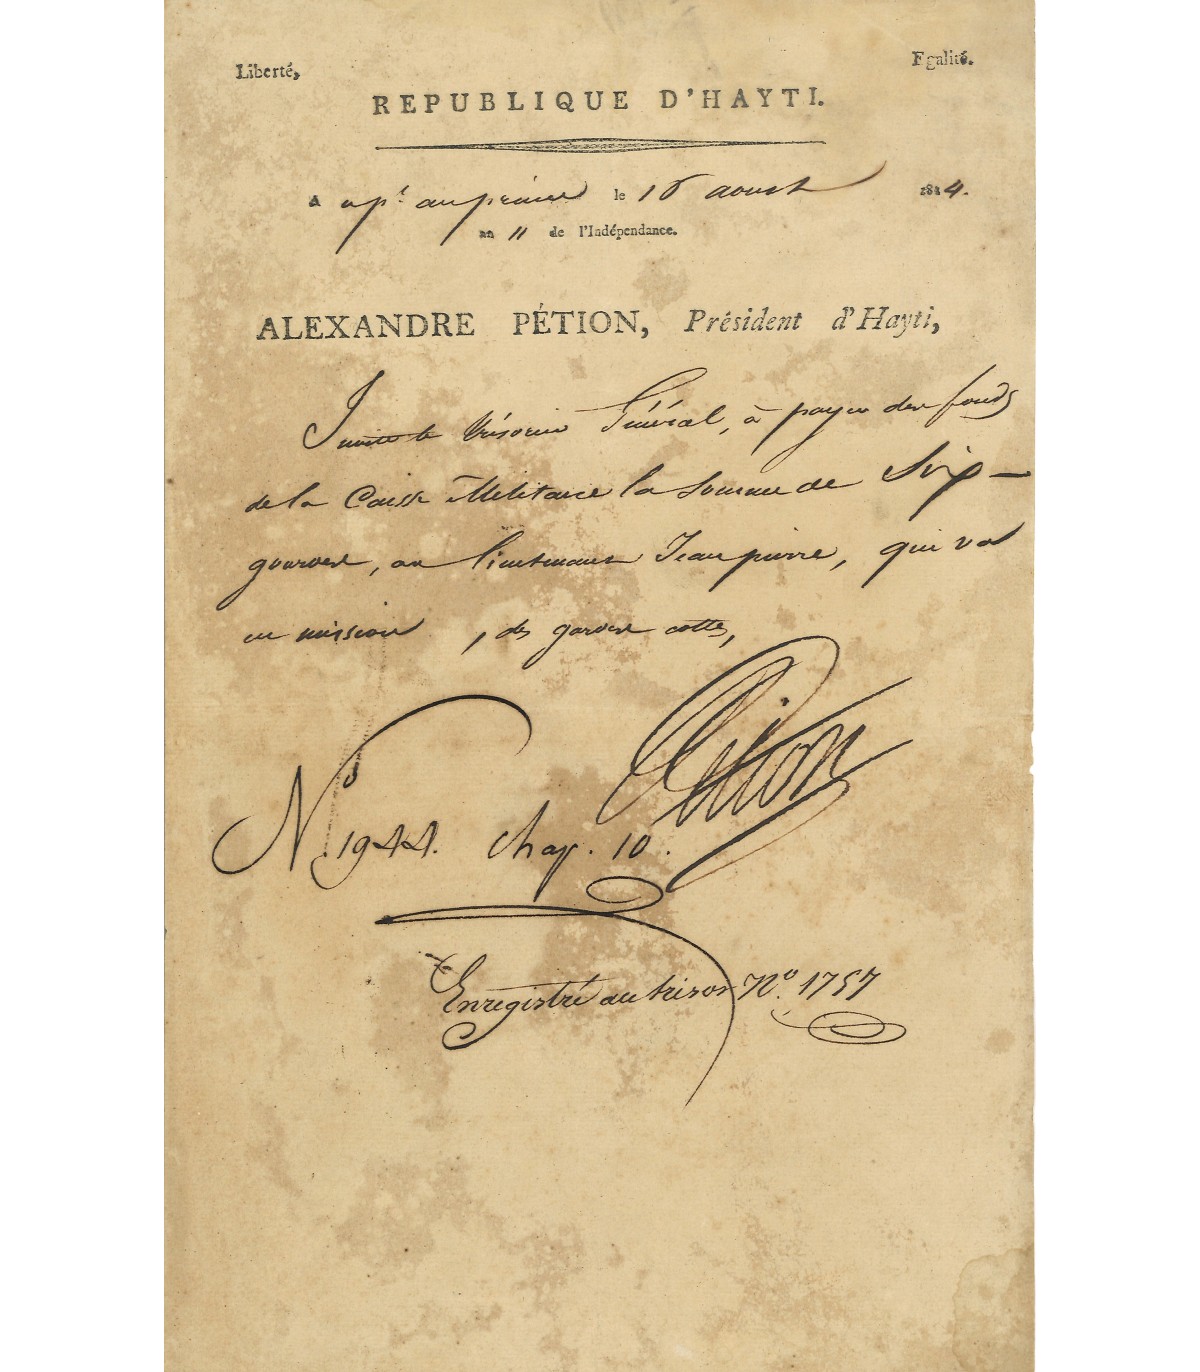 Liberté, Egalité.
REPUBLIQUE D'HAYTI.
A up.t auprince le 16 aoust 1814.
an 11 de l'Indépendance.
ALEXANDRE PÉTION, Président d'Hayti,
Invite le trésorier Général, à payer des fonds
de la Caisse Militaire la somme de Six
gourdes, au lieutenant Jeanpierre, qui va
en mission, des
Pétion
No. 1944. Chap. 10.
Enregistré au tresor No. 1757